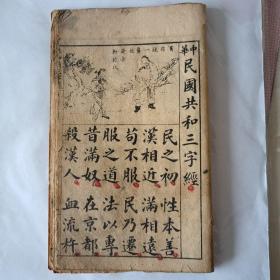 中華民國共和三字經
民之初 性本善
漢相近 滿相遠
苟不服 民乃遷
服之道 法以專
昔滿奴 在京都
殺漢人 血流杵